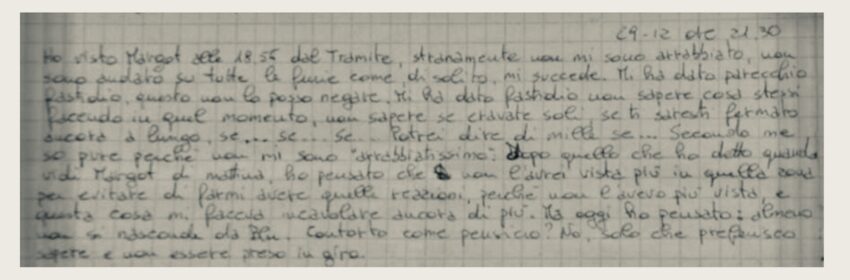 29-12 ore 21.30
Ho visto Margot alle 18.55 dal Tramite, stranamente non mi sono arrabbiato, non
sono andato su tutte le furie come, di solito, mi succede. Mi ha dato parecchio
fastidio, questo non lo posso negare. Mi ha dato fastidio non sapere cosa stessi
facendo in quel momento, non sapere se eravate soli, se ti saresti fermato
ancora a lungo, se... se... se... Potrei dire di mille se... Secondo me
so pure perché non mi sono "arrabbiatissimo": Dopo quello che ho detto quando
vidi Margot di mattina, ho pensato che non l'avrei vista più in quella zona
per evitare di farmi avere quelle reazioni, perché non l'avevo più vista, e
questa cosa mi faceva incavolare ancora di più. Ma oggi ho pensato: almeno
non si nasconde da Blu. Contorto come pensiero? No, solo che preferisco
sapere e non essere preso in giro.